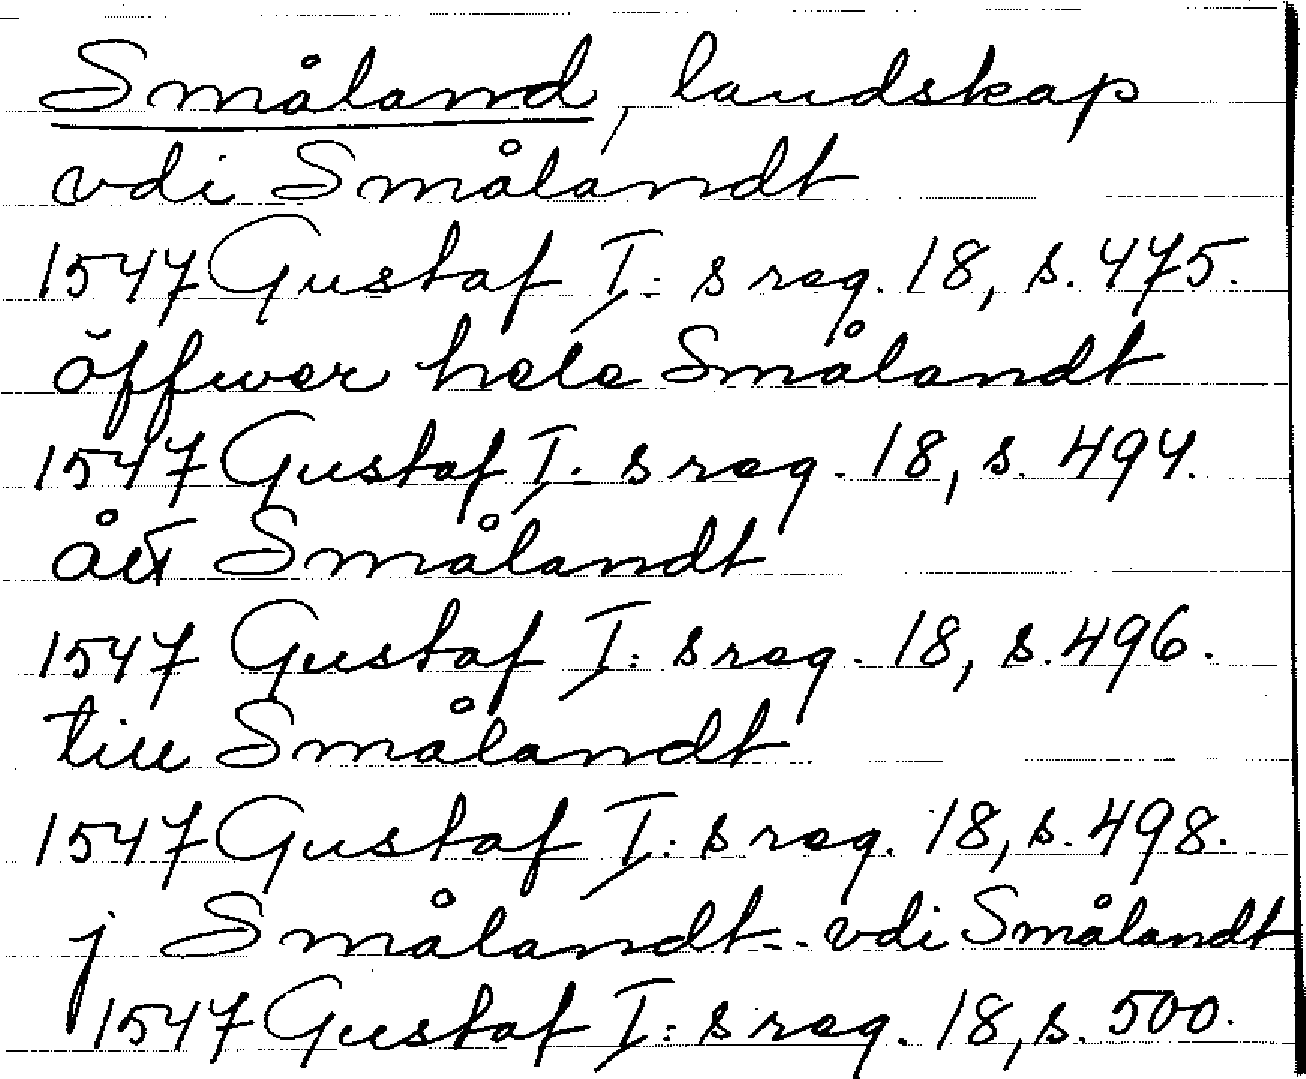 Småland, landskap
vdi Smålandt
1547 Gustaf I: s reg. 18, s. 475.
öffwer hele Smålandt
1547 Gustaf I. s reg. 18, s. 494.
ått Smålandt
1547 Gustaf I: s reg. 18, s. 496.
till Smålandt
1547 Gustaf I: s reg. 18, s. 498.
j Smålandt - vdi Smålandt
1547 Gustaf I: s reg. 18, s. 500.